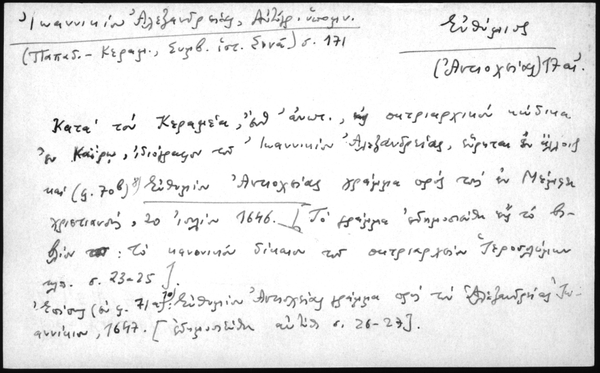 Ἰωαννικίου Ἀλεξανδρείας,
(Παπαδ.-Κεραμ., Συμβ. ἱστ. Σινᾶ) σ. 171
Εὐθύμιος
(Ἀντιοχείας) 17 αἰ.
Κατὰ τὸν Κεραμέα, ἔνθ' ἀνωτ., εἰς πατριαρχικὸν κώδικα
ἐν Καΐρῳ, ἰδιόγραφον τοῦ Ἰωαννικίου Ἀλεξανδρείας, εὕρηται ἐν ἄλλοις
καὶ (φ. 70β) Εὐθυμίου Ἀντιοχείας γράμμα πρὸς τοὺς ἐν
χριστιανούς, 20 Ἰουλίου 1646. [Τὸ γράμμα ἐδημοσιεύθη εἰς τὸ βι-
βλίον : τὸ κανονικὸν δίκαιον τοῦ πατριαρχείου Ἱεροσολύμων
κλπ. σ. 23-25].
Ἐπίσης (ἐν φ. 71α): Εὐθυμίου Ἀντιοχείας γράμμα πρὸς τὸν Ἀλεξανδρείας Ἰω-
αννίκιον, 1647. [ἐδημοσιεύθη αὐτόθι σ. 26-27].